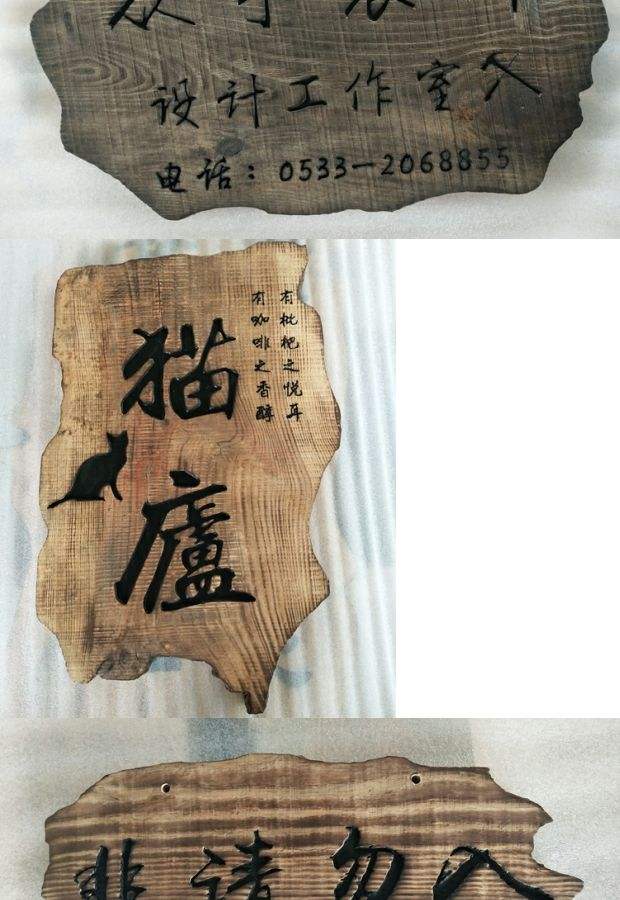 设计工作室
电话：0533-2068855
有枇杷之悦耳
有咖啡之香醇
猫廬
非请勿入